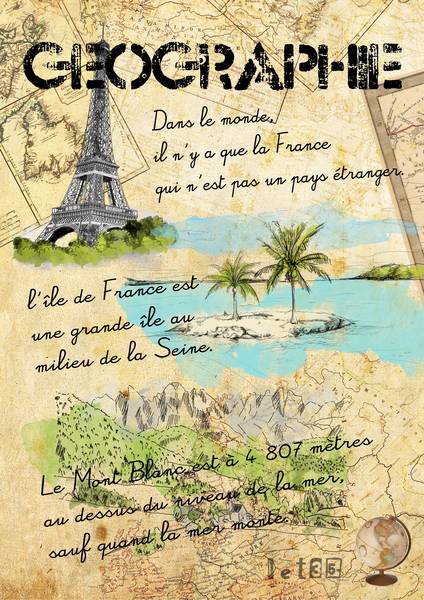 GEOGRAPHIE
Dans le monde,
il n'y a que la France
qui n'est pas un pays étranger.
l'île de France est
une grande île au
milieu de la Seine.
Le Mont Blanc est à 4 807 mètres
au dessus du niveau de la mer,
sauf quand la mer monte.